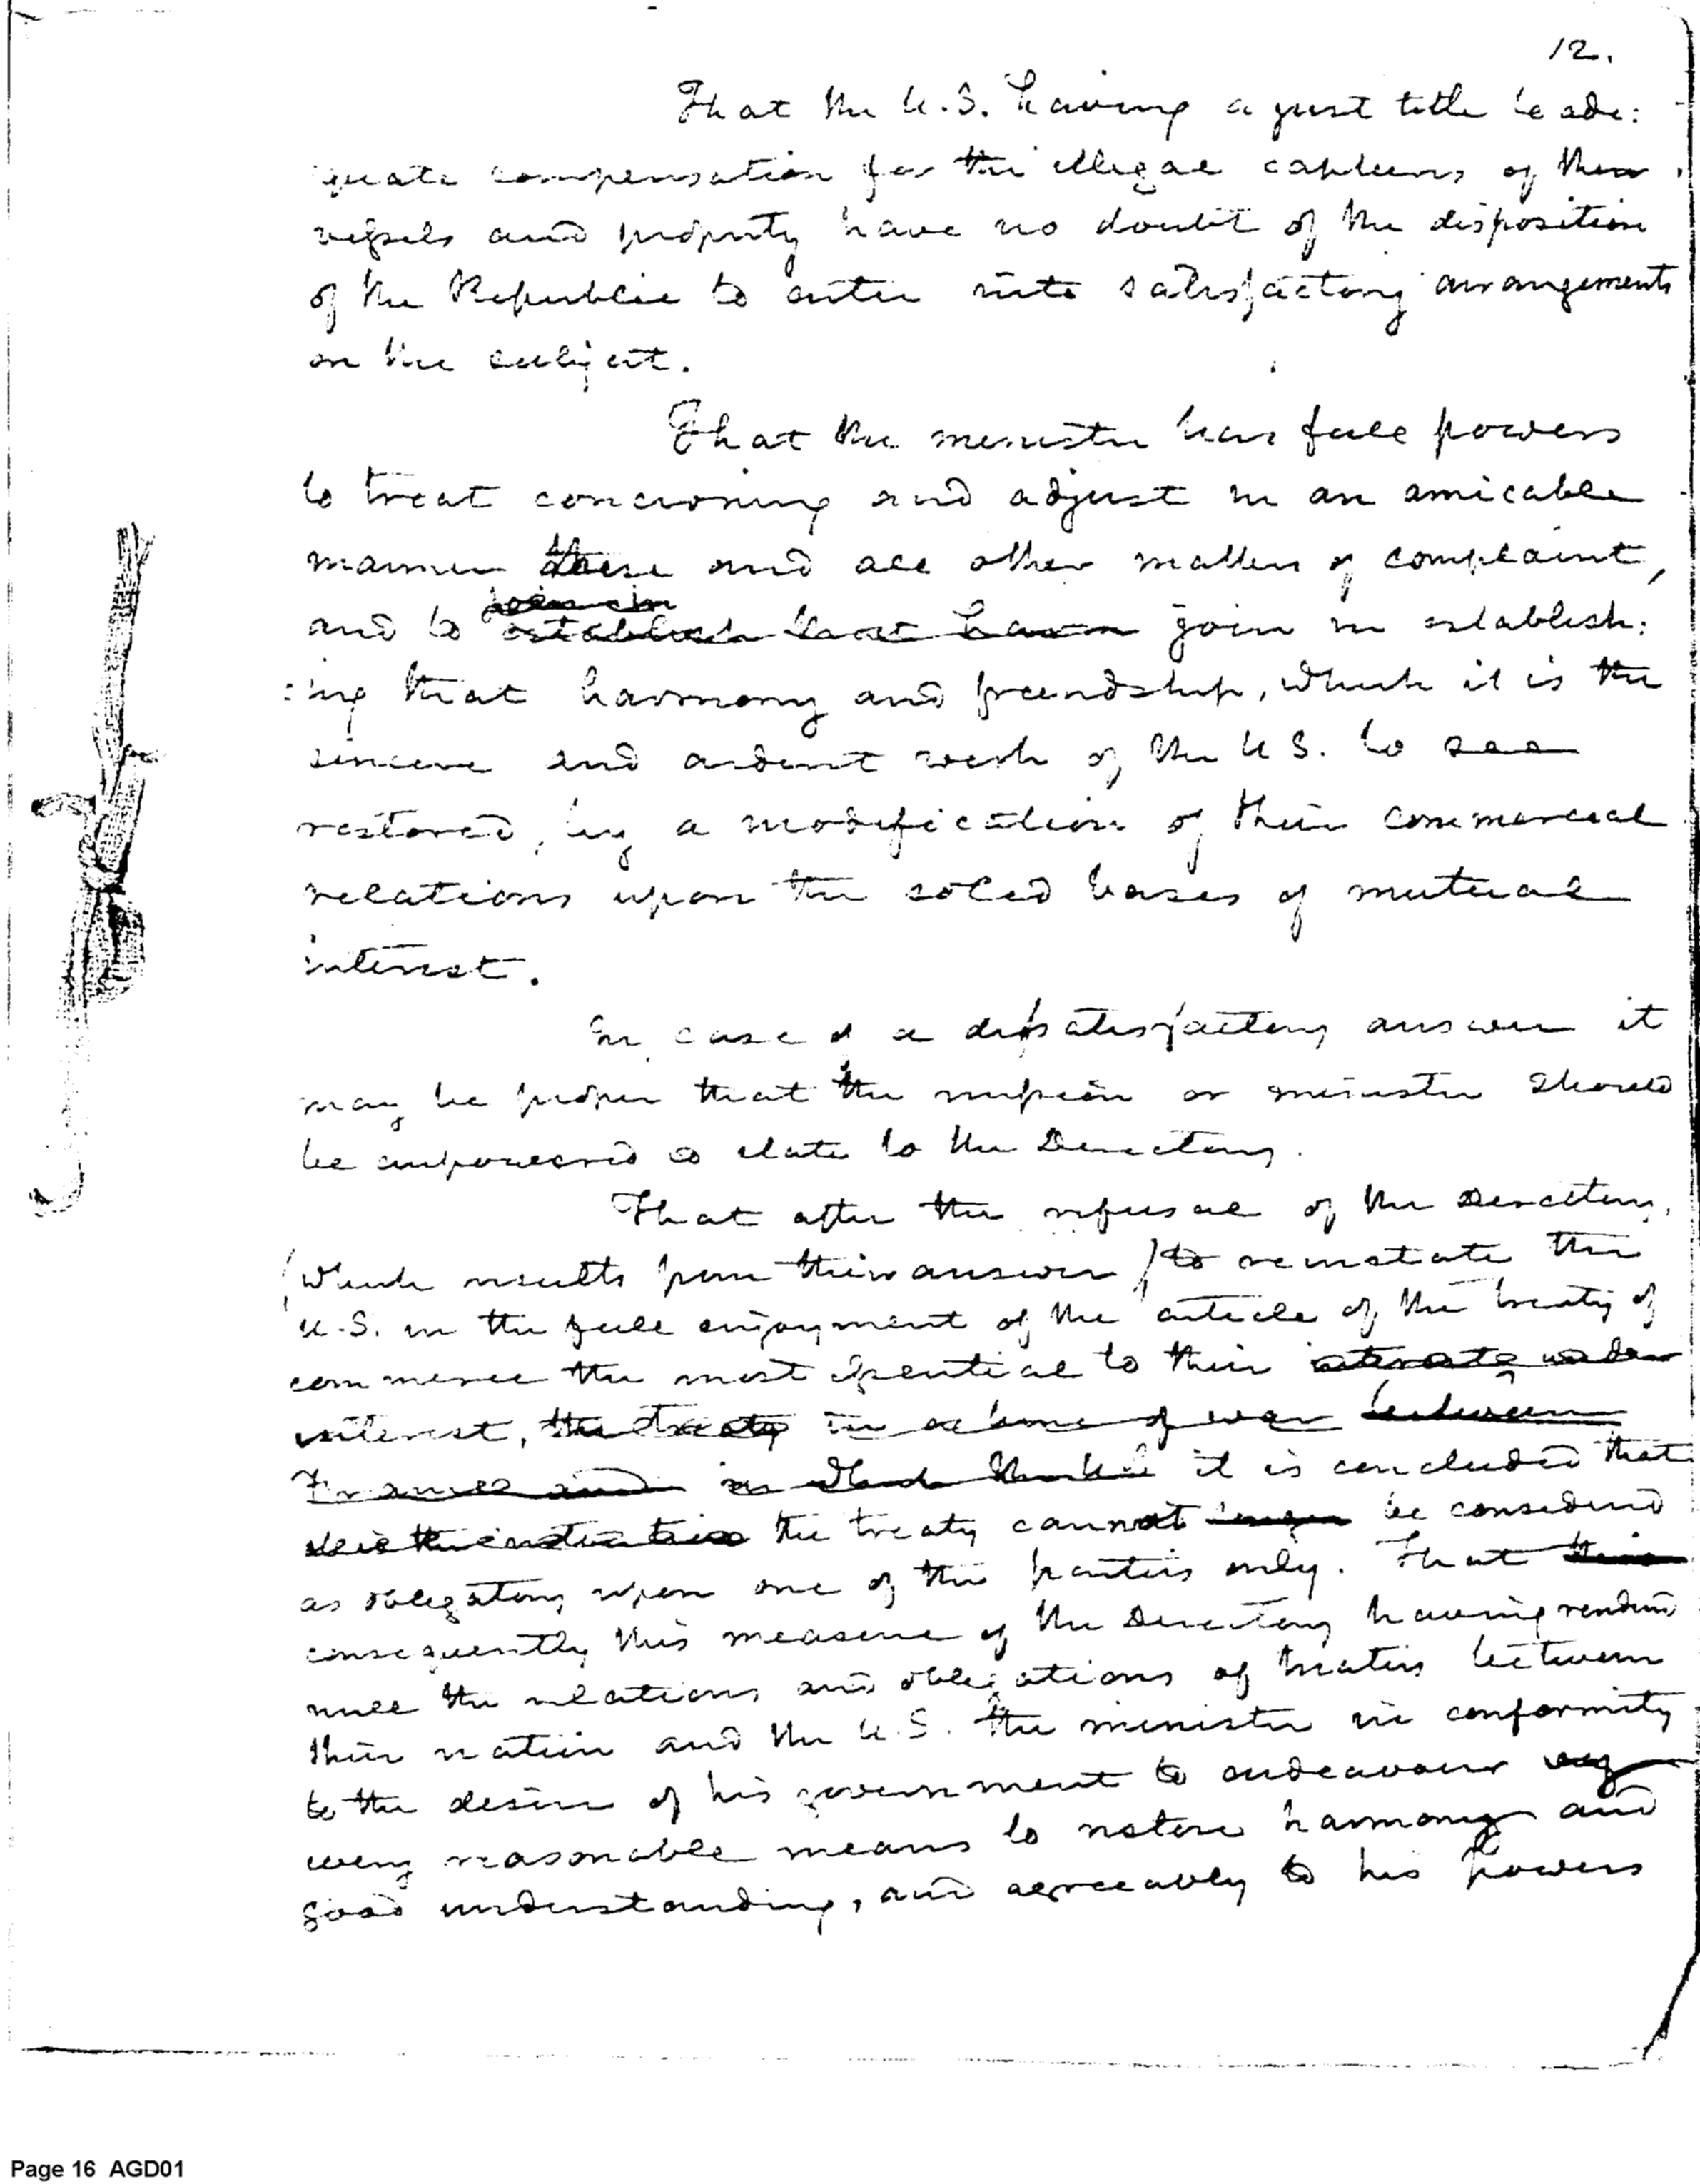 12.
That the U.S. having a just title to ade:
quate compensation for the illegal captures of their
vessels and property have no doubt of the disposition
of the Republic to enter into satisfactory arrangements
on the subject.
That the minister has full powers
to treat concerning and adjust in an amicable
manner these and all other matters of complaint,
join in
and to establish that harm join in establish:
:ing that harmony and friendship, which it is the
sincere and ardent wish of the U S. to see
restored, by a modification of their commercial
relations upon the solid bases of mutual
interest.
In case of a dissatisfactory answer it
may be proper that the mission or minister should
be empowered to state to the Directory.
That after the refusal of the Directory,
(which results from their answer) to reinstate the
U.S. in the full enjoyment of the article of the treaty of
commerce the most essential to their interests under
interest, the treaty in a time of war between
France and in which it is concluded that
the treaty cannot longer be considered
as obligatory upon one of the parties only. That this
consequently this measure of the Directory having rendered
null the relations and obligations of treaties between
their nation and the U.S. the minister in conformity
to the desire of his government to endeavour by
every reasonable means to restore harmony and
good understanding, and agreeably to his powers
Page 16 AGD01